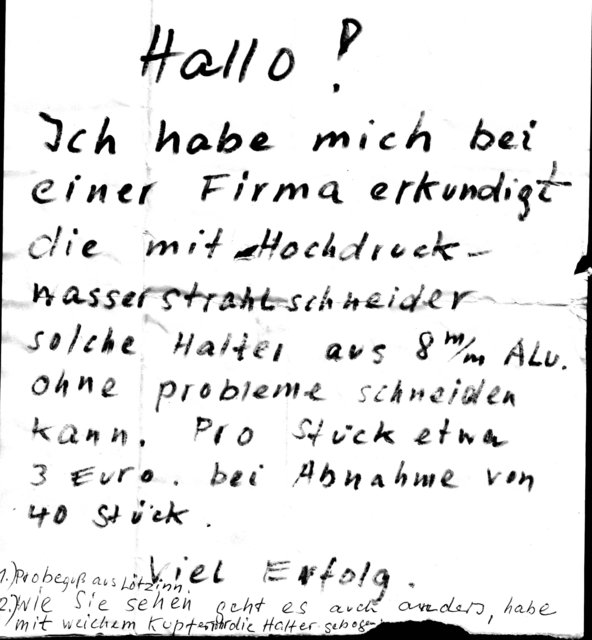 Hallo!
Ich habe mich bei
einer Firma erkundigt
die mit Hochdruck-
wasserstrahlschneider
solche Halter aus 8 m/m ALU.
ohne probleme schneiden
kann. Pro Stück etwa
3 Euro. bei Abnahme von
40 Stück.
Viel Erfolg.
1.) Probeguß aus Lötzinn.
2.) Wie Sie sehen geht es auch anders, habe
mit weichem Kupfer die Halter